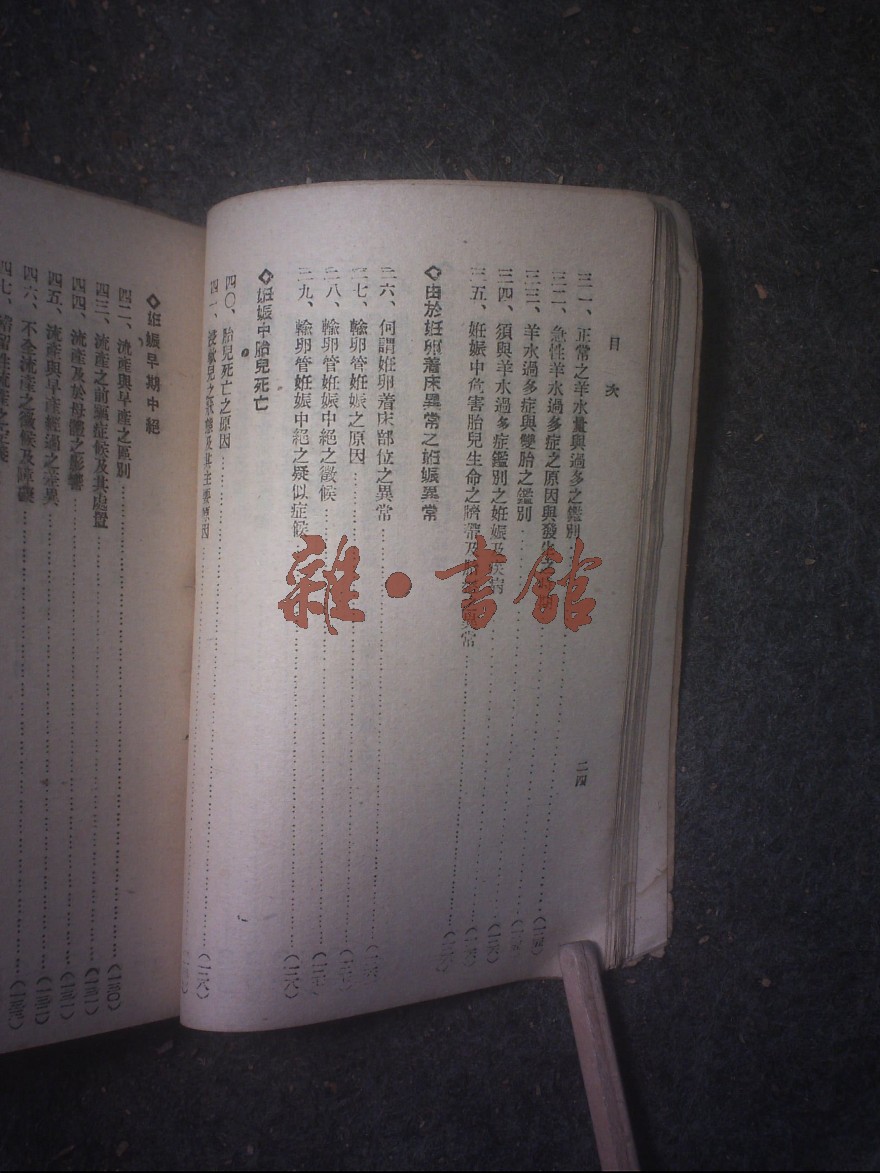 目次
二四
三一、正常之羊水量與過多之鑑別
三二、急性羊水過多症之原因與發生
三三、羊水過多症與雙胎之鑑別
三四、須與羊水過多症鑑別之妊娠及疾病
三五、妊娠中危害胎兒生命之臍帶及 異常
◇由於妊卵着床異常之妊娠異常
三六、何謂妊卵着床部位之異常
三七、輸卵管妊娠之原因
三八、輸卵管妊娠中絕之徵候
三九、輸卵管妊娠中絕之疑似症候 (一二八)
◇妊娠中胎兒死亡
四〇、胎兒死亡之原因 (一二八)
四一、浸軟兒之狀態及其主要原因
◇妊娠早期中絕
四二、流產與早產之區別 (一三〇)
四三、流產之前驅症候及其處置 (一三一)
四四、流產及於母體之影響 (一三一)
四五、流產與早產經過之差異
四六、不全流產之徵候及障礙
四七、稽留性流產之定義
雜·書館